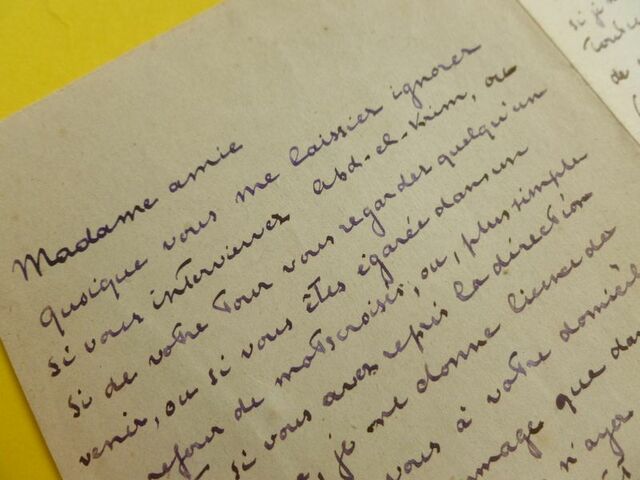 Madame amie
Quoique vous me laissiez ignorer
si vous interviewez Abd-el-Krim, ou
si de votre tour vous regardez quelqu'un
venir, ou si vous êtes égarée dans un
refour de motscroisés, ou, plus simple
si vous avez repris la direction
, je me donne licence de
vous à votre domicile
mmage que dan
n'ayez
si j
de